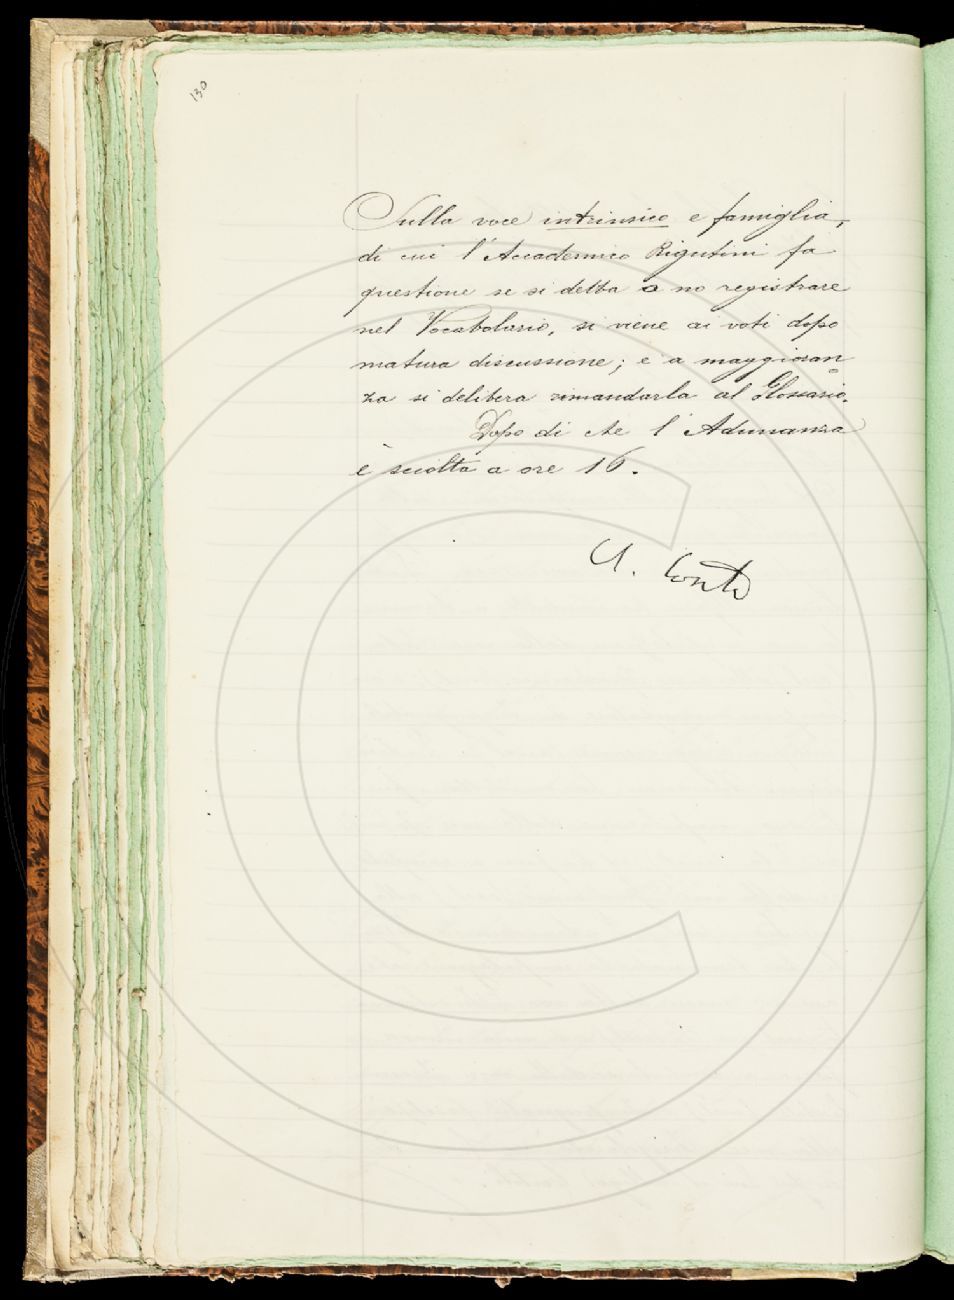 130
Sulla voce intrinsico e famiglia,
di cui l'Accademico Rigutini fa
questione se si debba o no registrare
nel Vocabolario, si viene ai voti dopo
matura discussione; e a maggioran
za si delibera rimandarla al Glossario.
Dopo di che l'Adunanza
è sciolta a ore 16.
A. Conti